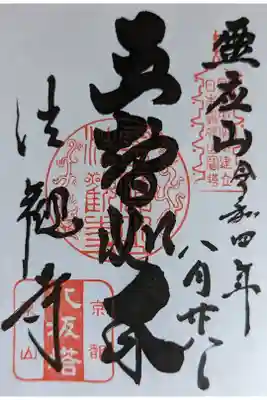 霊応山
令和四年
八月廿八日
五智如来
法観寺
京都
八坂塔